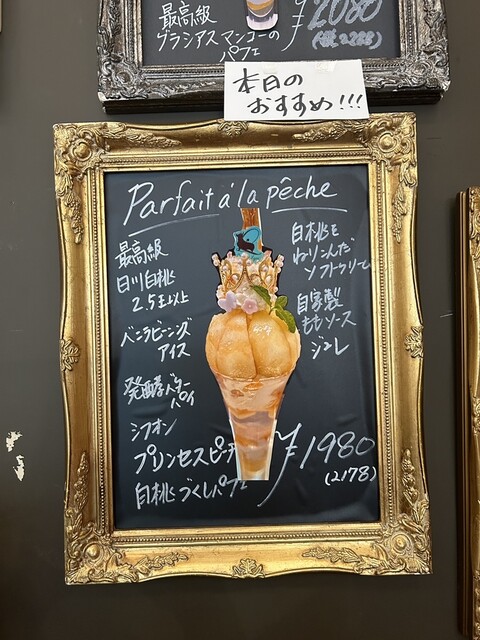 最高級
グラシアスマンゴーの
パフェ
¥2080
(税2288)
本日の
おすすめ!!!
Parfait á la pêche
最高級
日川白桃
2.5玉以上
バニラビーンズ
アイス
発酵バター
パイ
シフォン
プリンセスピーチ
白桃づくしパフェ
白桃を
ねりこんだ
ソフトクリーム
自家製
ももソース
ジュレ
¥1980
(2178)